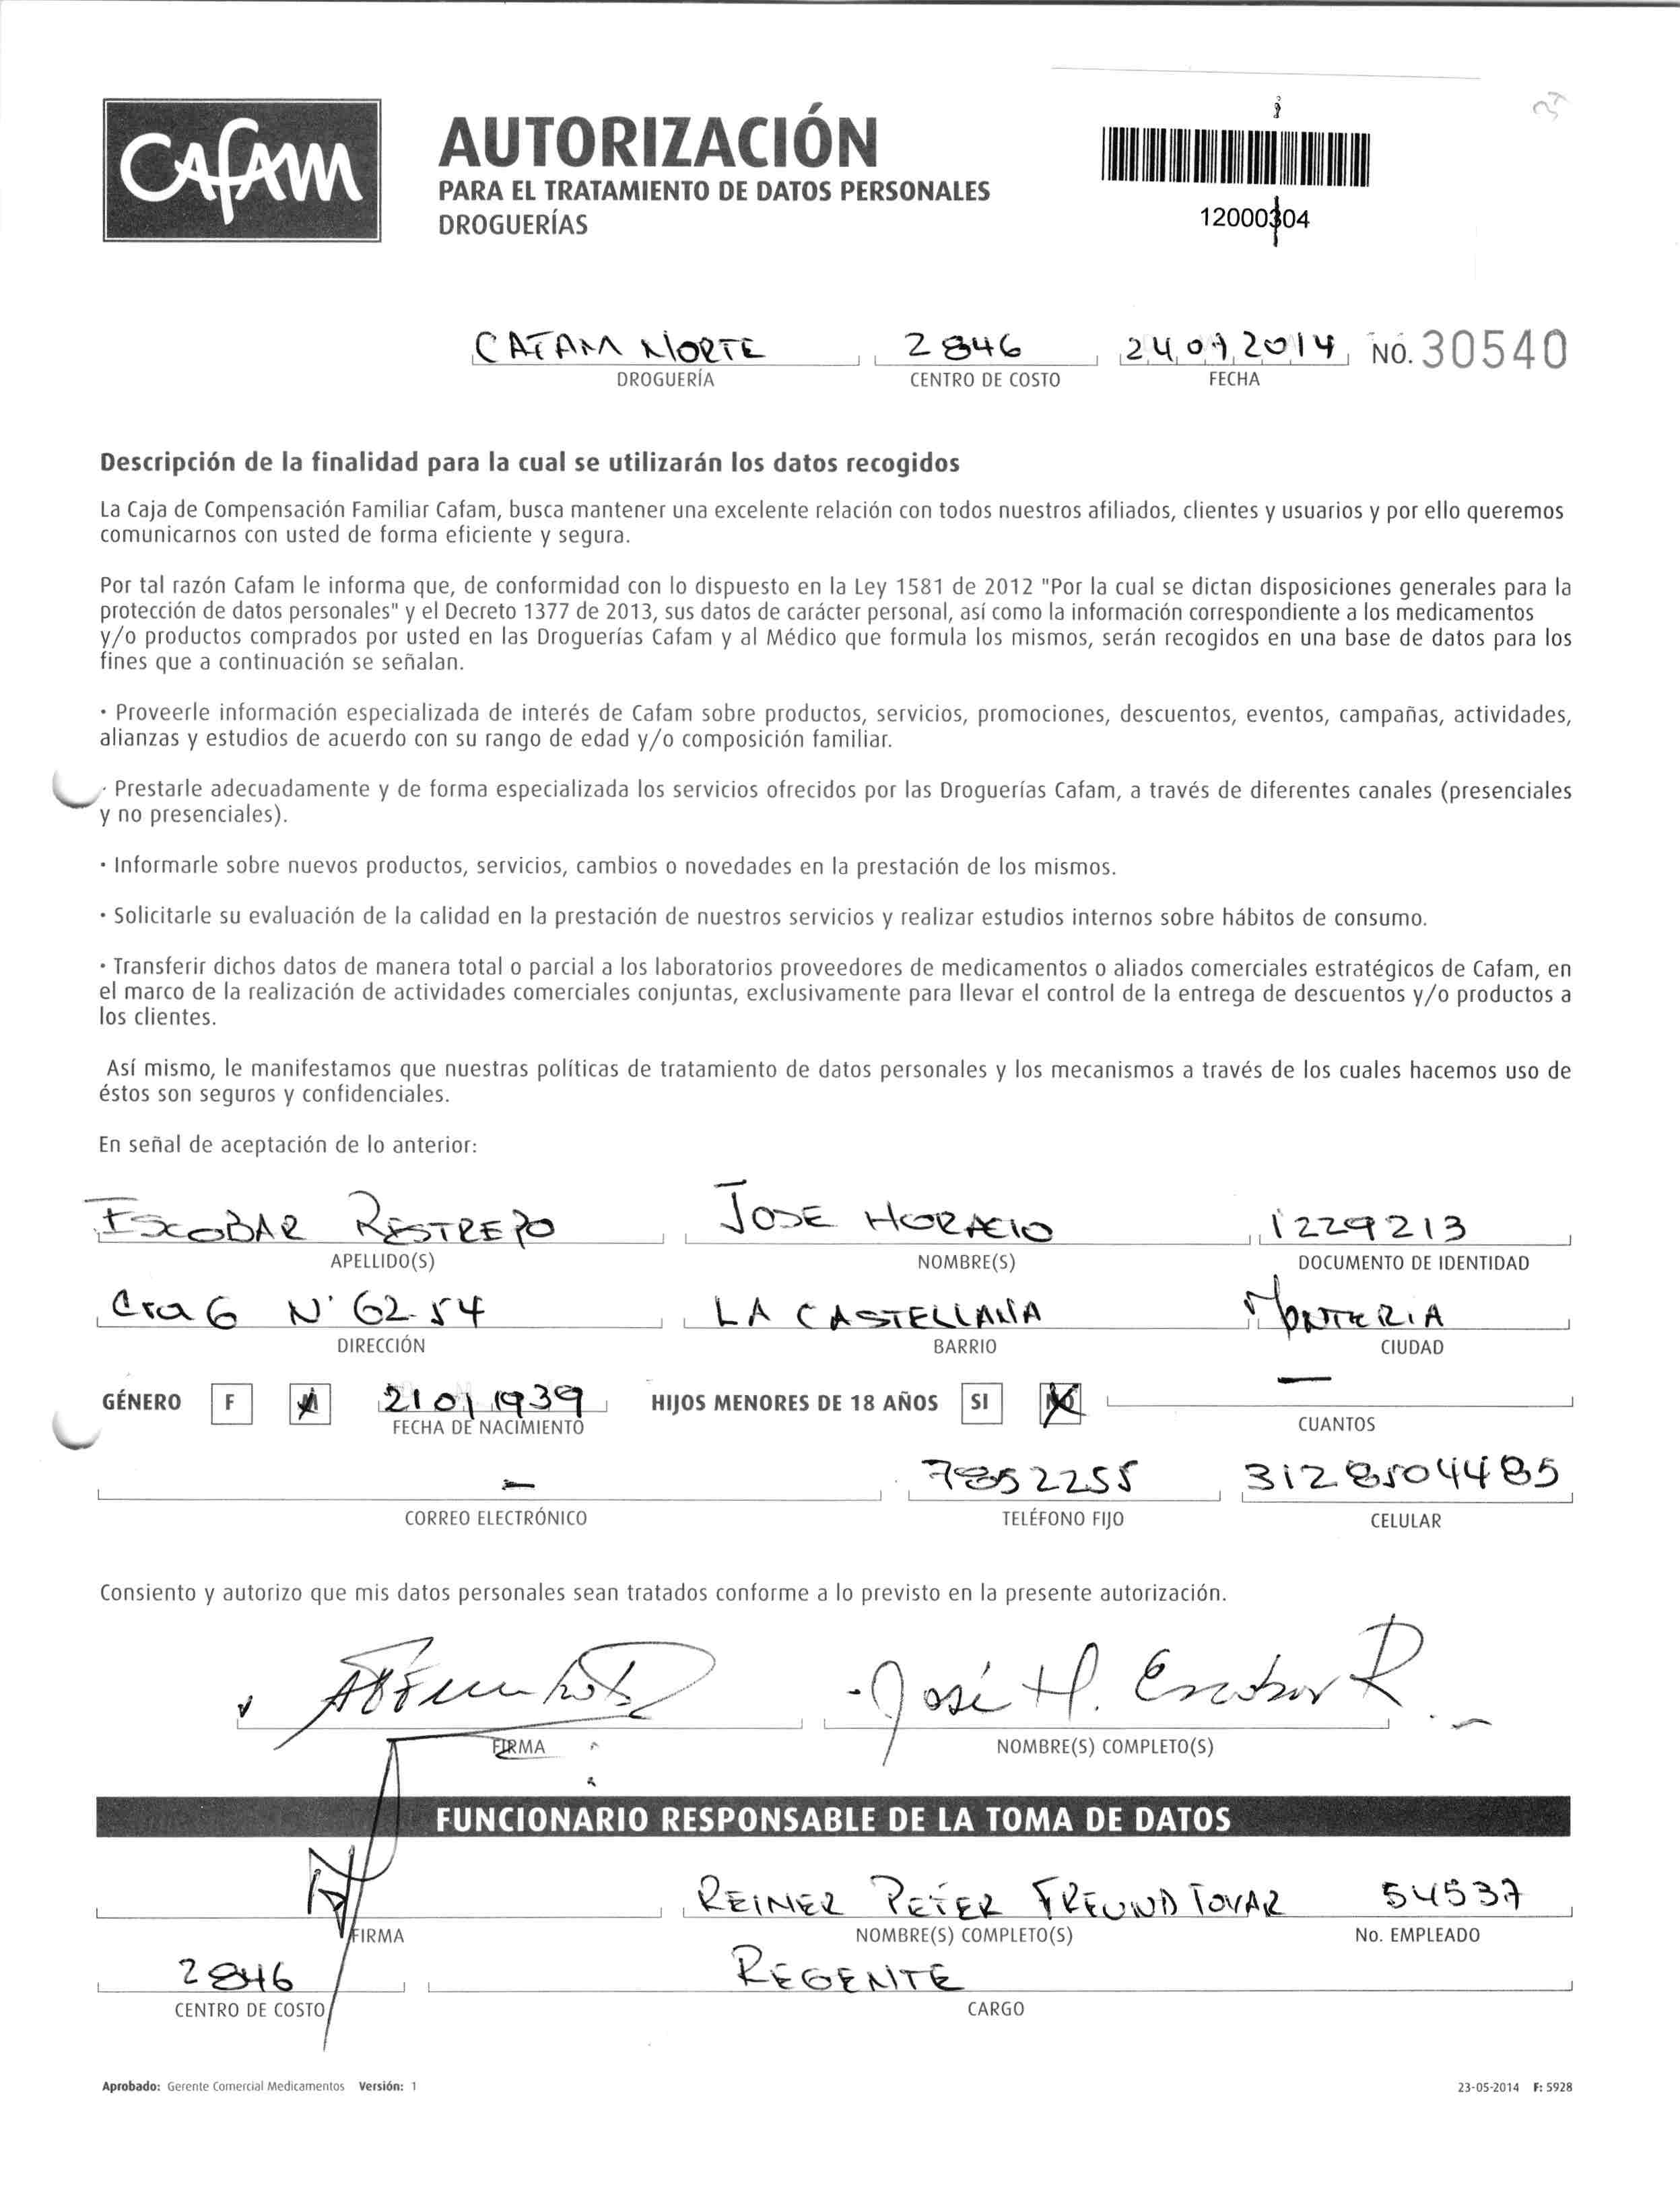 Cafam
AUTORIZACIÓN
PARA EL TRATAMIENTO DE DATOS PERSONALES
DROGUERÍAS
CAFAM NORTE 2846 24 2014 NO. 30540
DROGUERÍA CENTRO DE COSTO FECHA
Descripción de la finalidad para la cual se utilizarán los datos recogidos
La Caja de Compensación Familiar Cafam, busca mantener una excelente relación con todos nuestros afiliados, clientes y usuarios y por ello queremos
comunicarnos con usted de forma eficiente y segura.
Por tal razón Cafam le informa que, de conformidad con lo dispuesto en la Ley 1581 de 2012 "Por la cual se dictan disposiciones generales para la
protección de datos personales" y el Decreto 1377 de 2013, sus datos de carácter personal, así como la información correspondiente a los medicamentos
y/o productos comprados por usted en las Droguerías Cafam y al Médico que formula los mismos, serán recogidos en una base de datos para los
fines que a continuación se señalan.
· Proveerle información especializada de interés de Cafam sobre productos, servicios, promociones, descuentos, eventos, campañas, actividades,
alianzas y estudios de acuerdo con su rango de edad y/o composición familiar.
· Prestarle adecuadamente y de forma especializada los servicios ofrecidos por las Droguerías Cafam, a través de diferentes canales (presenciales
y no presenciales).
· Informarle sobre nuevos productos, servicios, cambios o novedades en la prestación de los mismos.
· Solicitarle su evaluación de la calidad en la prestación de nuestros servicios y realizar estudios internos sobre hábitos de consumo.
· Transferir dichos datos de manera total o parcial a los laboratorios proveedores de medicamentos o aliados comerciales estratégicos de Cafam, en
el marco de la realización de actividades comerciales conjuntas, exclusivamente para llevar el control de la entrega de descuentos y/o productos a
los clientes.
Así mismo, le manifestamos que nuestras políticas de tratamiento de datos personales y los mecanismos a través de los cuales hacemos uso de
éstos son seguros y confidenciales.
En señal de aceptación de lo anterior:
ESCOBAR RESTREPO JOSE HORACIO 1229213
APELLIDO(S) NOMBRE(S) DOCUMENTO DE IDENTIDAD
Cra 6 N° 62-54 LA CASTELLANA MONTERIA
DIRECCIÓN BARRIO CIUDAD
GÉNERO F M 21 01 1939 HIJOS MENORES DE 18 AÑOS SI NO —
FECHA DE NACIMIENTO CUANTOS
— 7852255 3128504485
CORREO ELECTRÓNICO TELÉFONO FIJO CELULAR
Consiento y autorizo que mis datos personales sean tratados conforme a lo previsto en la presente autorización.
José H. Escobar R.
FIRMA NOMBRE(S) COMPLETO(S)
FUNCIONARIO RESPONSABLE DE LA TOMA DE DATOS
REINER PETER FREUND TOVAR 54537
FIRMA NOMBRE(S) COMPLETO(S) No. EMPLEADO
2846 REGENTE
CENTRO DE COSTO CARGO
Aprobado: Gerente Comercial Medicamentos Versión: 1 23-05-2014 F: 5928